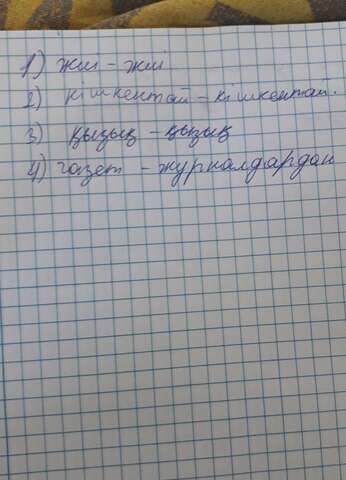 1) жиі - жиі
2) кішкентай - кішкентай.
3) қызық - қызық
4) газет - журналдардан